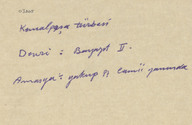 Kemalpaşa türbesi
Devri : Bayazıt II.
Amasya'da yakup Pş. Camii yanında